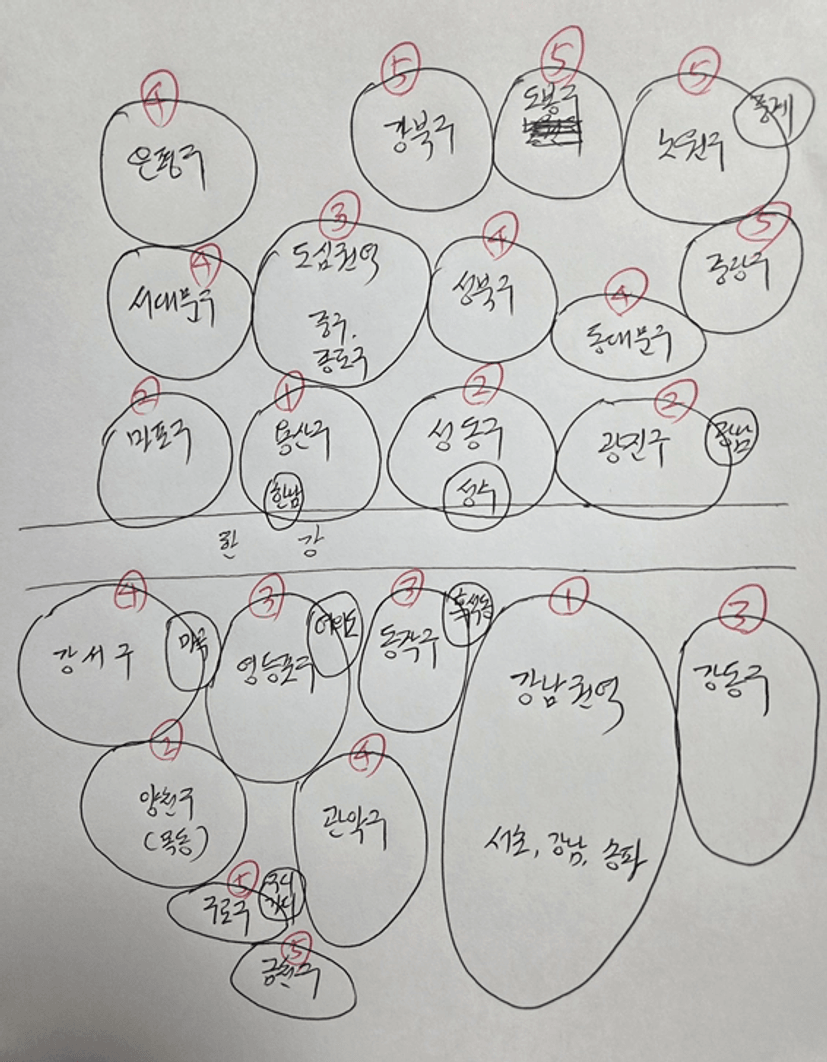 ④
은평구
⑤
강북구
⑤
도봉구
⑤
노원구
중계
④
서대문구
③
도심권역
중구,
종로구
④
성북구
④
동대문구
⑤
중랑구
②
마포구
①
용산구
한남
②
성동구
성수
②
광진구
한강
④
강서구
마곡
③
영등포구
여의도
③
동작구
흑석동
①
강남권역
서초, 강남, 송파
③
강동구
②
양천구
(목동)
④
관악구
⑤
구로구
구디
가디
⑤
금천구